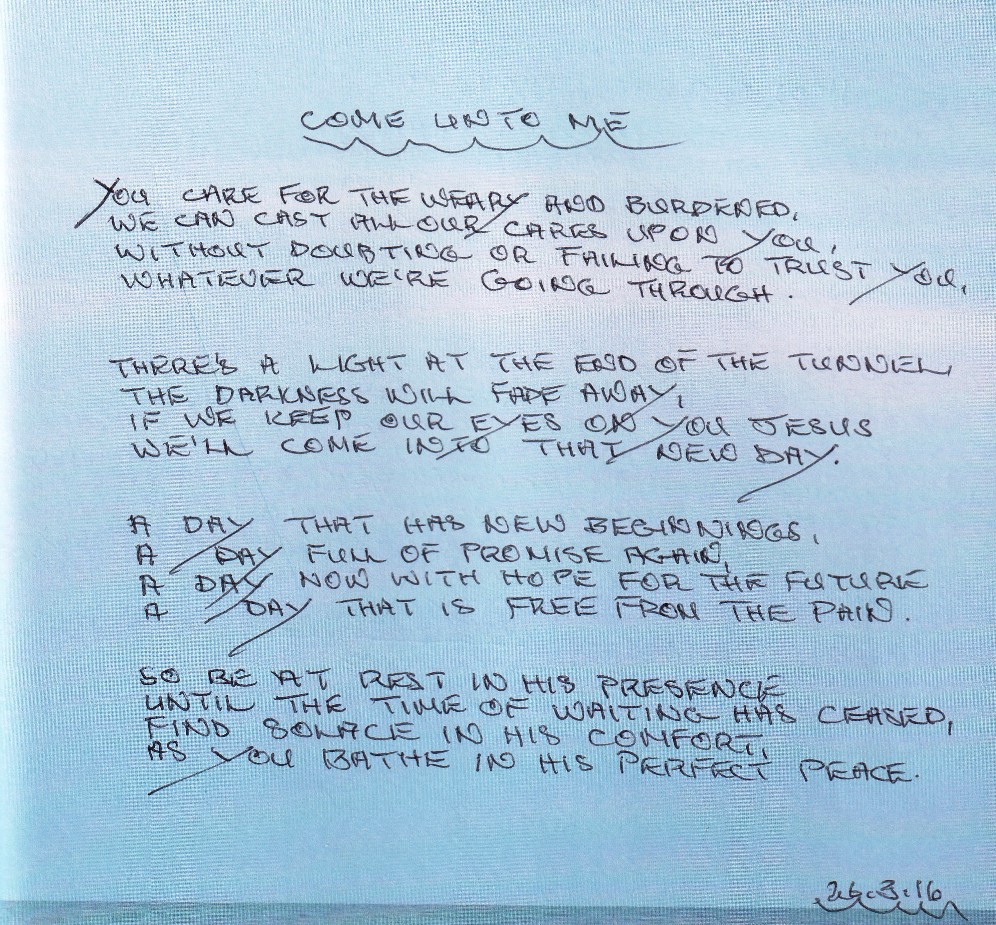 COME UNTO ME
YOU CARE FOR THE WEARY AND BURDENED,
WE CAN CAST ALL OUR CARES UPON YOU,
WITHOUT DOUBTING OR FAILING TO TRUST YOU,
WHATEVER WE'RE GOING THROUGH.
THERE'S A LIGHT AT THE END OF THE TUNNEL,
THE DARKNESS WILL FADE AWAY,
IF WE KEEP OUR EYES ON YOU JESUS
WE'LL COME INTO THAT NEW DAY.
A DAY THAT HAS NEW BEGINNINGS,
A DAY FULL OF PROMISE AGAIN,
A DAY NOW WITH HOPE FOR THE FUTURE
A DAY THAT IS FREE FROM THE PAIN.
SO BE AT REST IN HIS PRESENCE
UNTIL THE TIME OF WAITING HAS CEASED,
FIND SOLACE IN HIS COMFORT,
AS YOU BATHE IN HIS PERFECT PEACE.
26.3.16